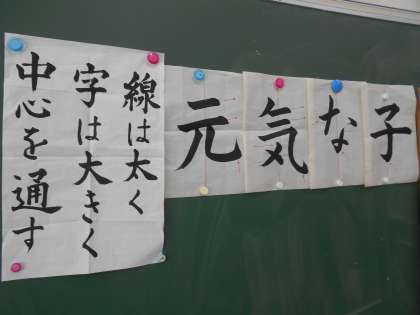 線は太く
字は大きく
中心を通す
元気な子